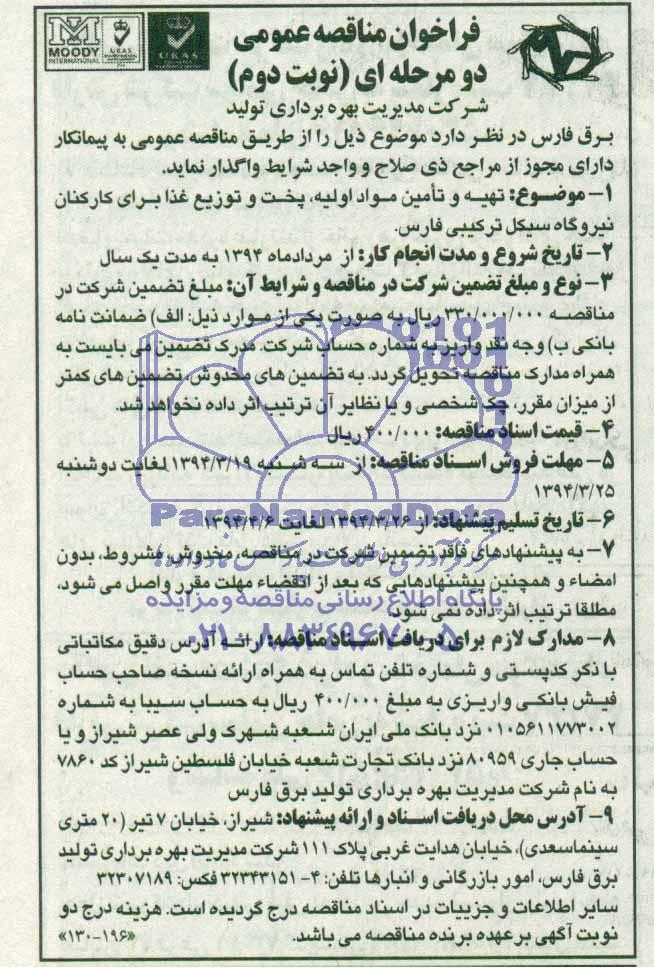 فراخوان مناقصه عمومی
دو مرحله ای (نوبت دوم)
MOODY
INTERNATIONAL
UKAS
UKAS
شرکت مدیریت بهره برداری تولید
برق فارس در نظر دارد موضوع ذیل را از طریق مناقصه عمومی به پیمانکار
دارای مجوز از مراجع ذی صلاح و واجد شرایط واگذار نماید.
۱- موضوع: تهیه و تأمین مواد اولیه، پخت و توزیع غذا برای کارکنان
نیروگاه سیکل ترکیبی فارس.
۲- تاریخ شروع و مدت انجام کار: از مردادماه ۱۳۹۴ به مدت یک سال
۳- نوع و مبلغ تضمین شرکت در مناقصه و شرایط آن: مبلغ تضمین شرکت در
مناقصه ۳۳۰/۰۰۰/۰۰۰ ریال به صورت یکی از موارد ذیل: الف) ضمانت نامه
بانکی ب) وجه نقد واریز به شماره حساب شرکت. مدرک تضمین می بایست به
همراه مدارک مناقصه تحویل گردد. به تضمین های مخدوش، تضمین های کمتر
از میزان مقرر، چک شخصی و یا نظایر آن ترتیب اثر داده نخواهد شد.
۴- قیمت اسناد مناقصه: ۴۰۰/۰۰۰ ریال
۵- مهلت فروش اسناد مناقصه: از سه شنبه ۱۳۹۴/۳/۱۹ لغایت دوشنبه
۱۳۹۴/۳/۲۵
ParsNamadData
۶- تاریخ تسلیم پیشنهاد: از ۱۳۹۴/۳/۲۶ لغایت ۱۳۹۴/۴/۶
۷- به پیشنهادهای فاقد تضمین شرکت در مناقصه، مخدوش، مشروط، بدون
امضاء و همچنین پیشنهادهایی که بعد از انقضاء مهلت مقرر واصل می شود،
پایگاه اطلاع رسانی مناقصه و مزایده
مطلقا ترتیب اثر داده نمی شود.
۸- مدارک لازم برای دریافت اسناد مناقصه: ارائه آدرس دقیق مکاتباتی
۰۲۱-۸۸۳۴۹۶۷۰-۵
با ذکر کدپستی و شماره تلفن تماس به همراه ارائه نسخه صاحب حساب
فیش بانکی واریزی به مبلغ ۴۰۰/۰۰۰ ریال به حساب سیبا به شماره
۰۱۰۵۶۱۱۷۷۳۰۰۲ نزد بانک ملی ایران شعبه شهرک ولی عصر شیراز و یا
حساب جاری ۸۰۹۵۹ نزد بانک تجارت شعبه خیابان فلسطین شیراز کد ۷۸۶۰
به نام شرکت مدیریت بهره برداری تولید برق فارس
۹- آدرس محل دریافت اسناد و ارائه پیشنهاد: شیراز، خیابان ۷ تیر (۲۰ متری
سینماسعدی)، خیابان هدایت غربی پلاک ۱۱۱ شرکت مدیریت بهره برداری تولید
برق فارس، امور بازرگانی و انبارها تلفن: ۴-۳۲۳۴۳۱۵۱ فکس: ۳۲۳۰۷۱۸۹
سایر اطلاعات و جزییات در اسناد مناقصه درج گردیده است. هزینه درج دو
نوبت آگهی بر عهده برنده مناقصه می باشد.
«۱۳۰-۱۹۶»